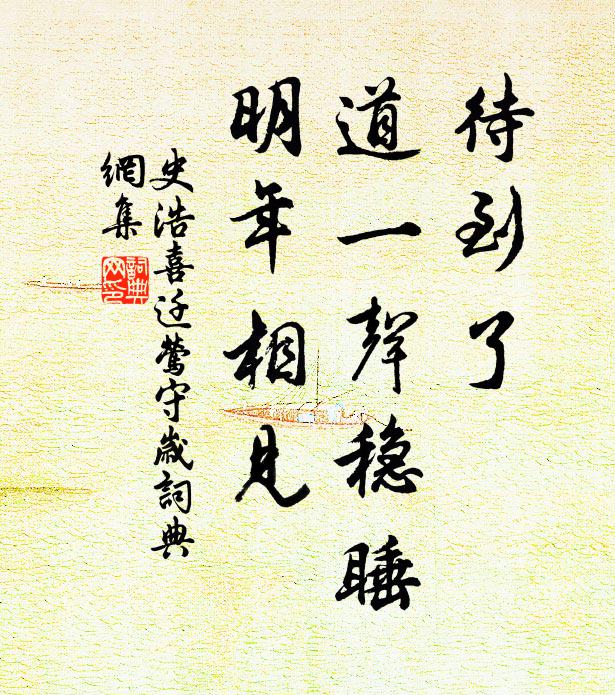 待到了
道一聲穩睡
明年相見
史浩喜迁鶯守歲詞典
網集
詞典
网印